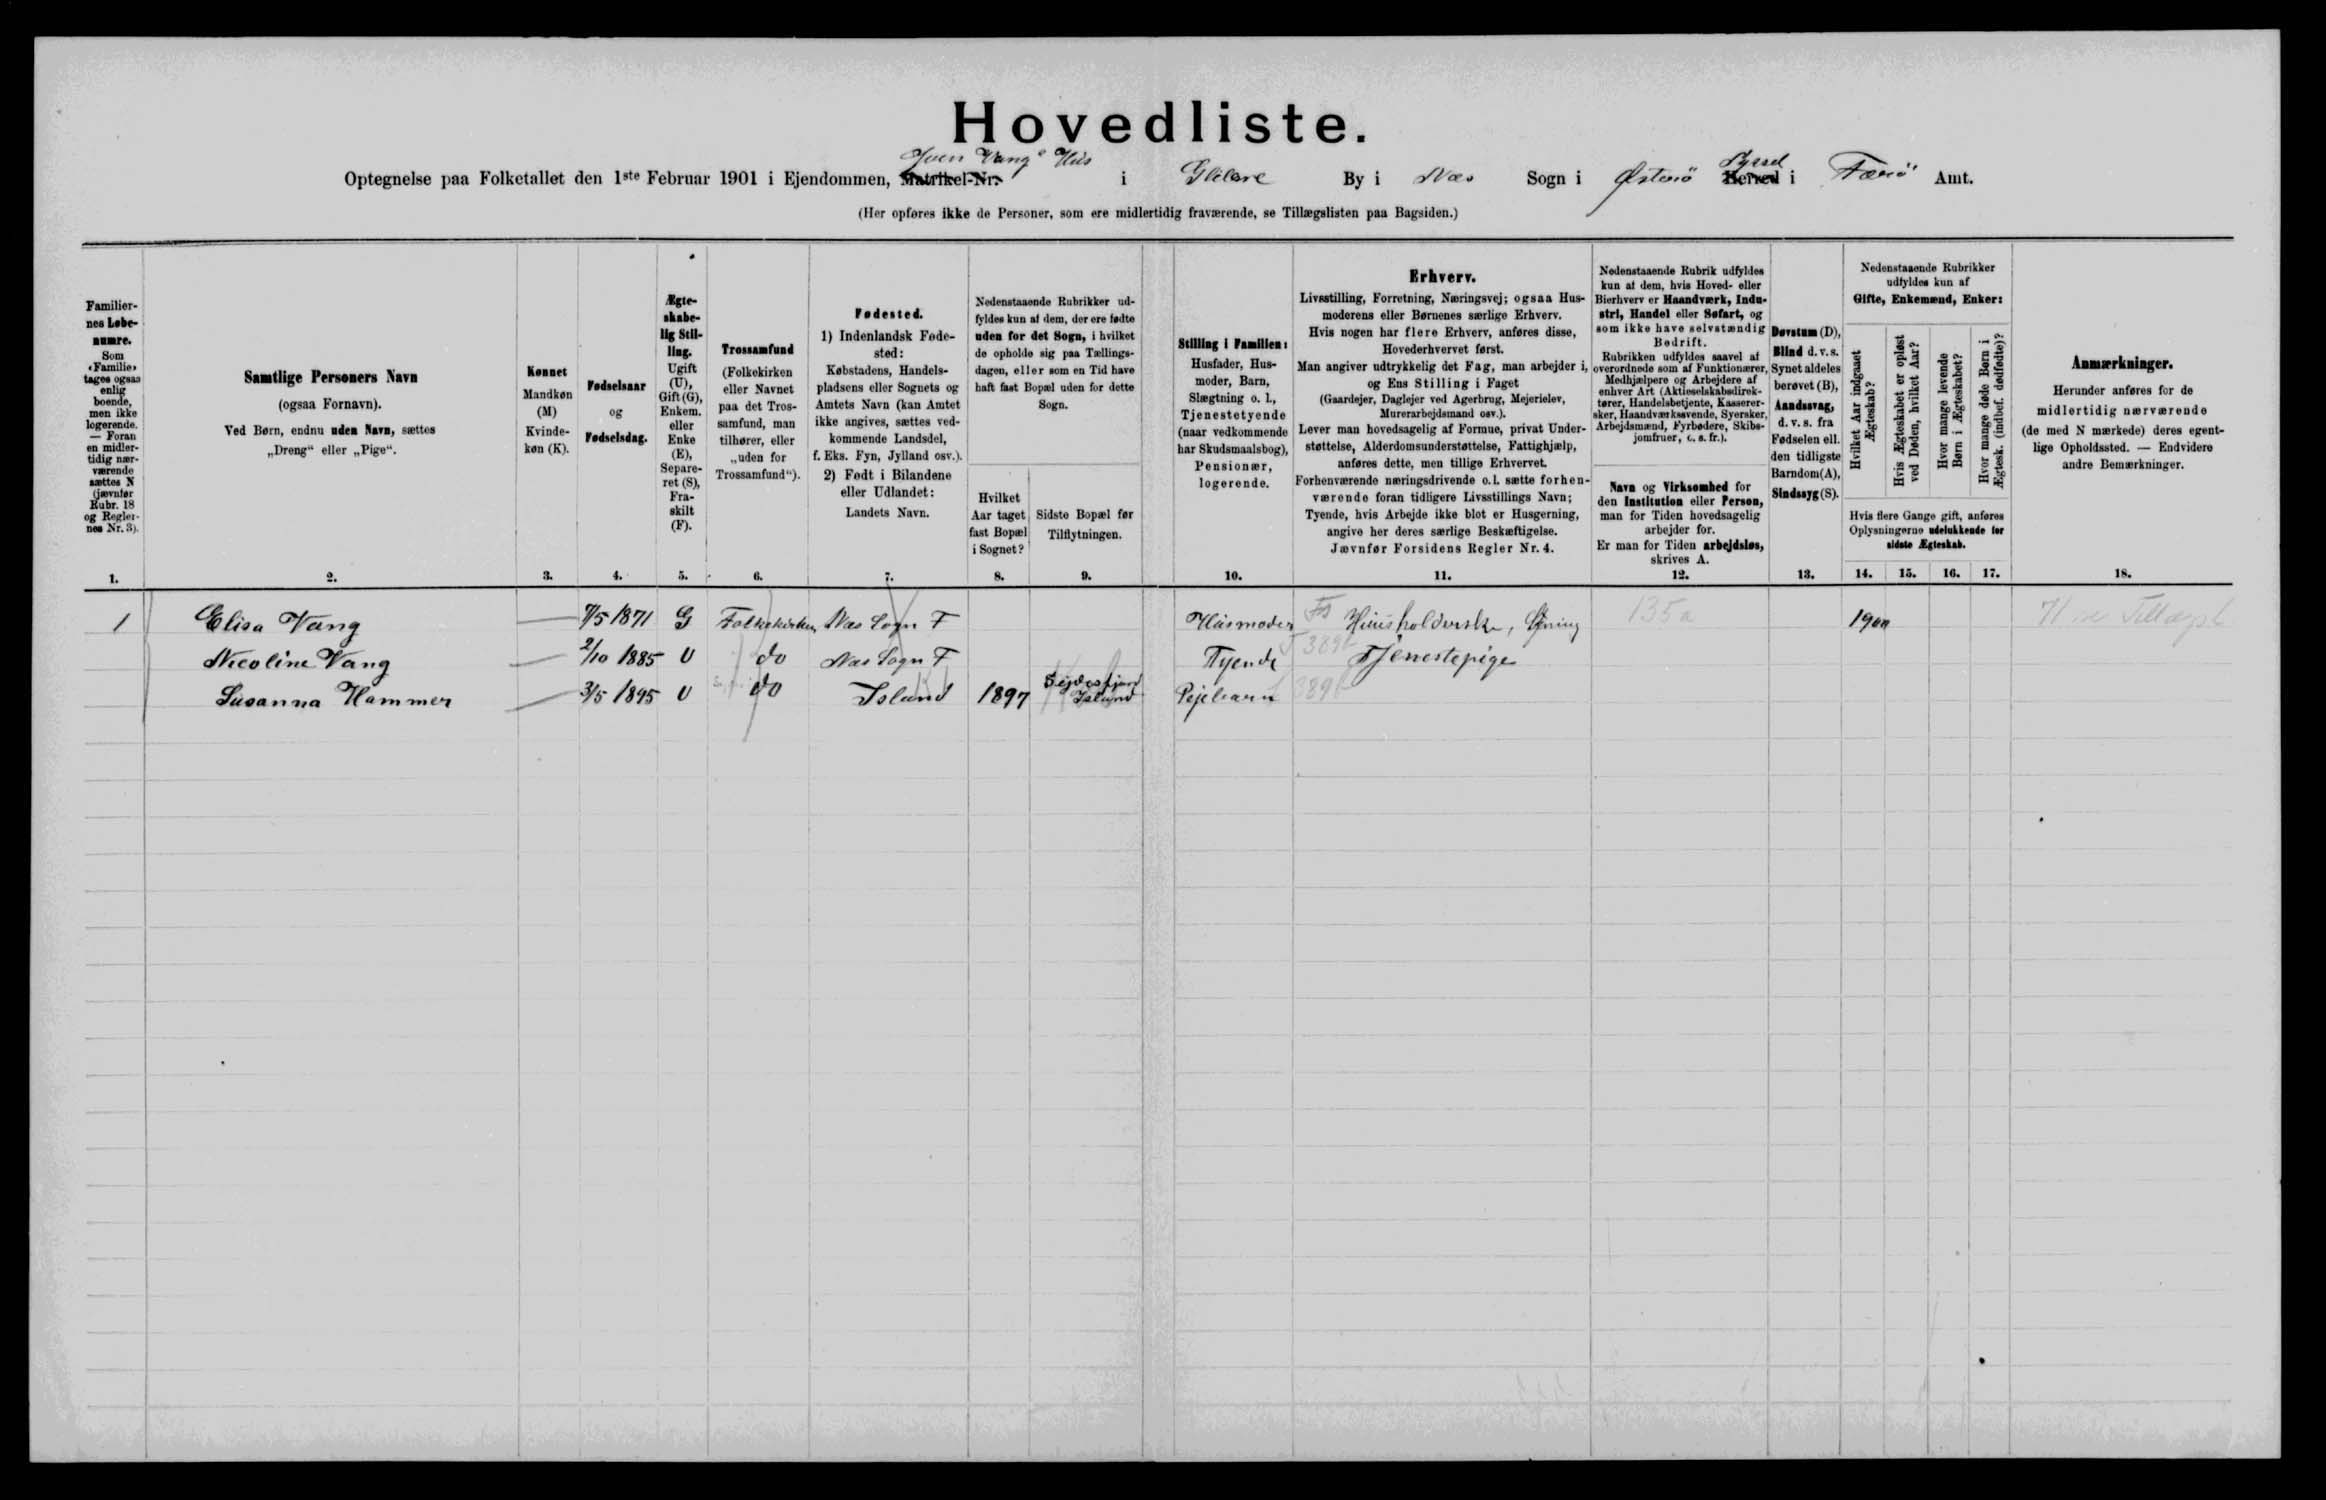 Hovedliste.
Optegnelse paa Folketallet den 1ste Februar 1901 i Ejendommen, Matrikel-Nr. Joen Vang' Hus i By i Næs Sogn i Østerø Herred Syssel i Færø Amt.
(Her opføres ikke de Personer, som ere midlertidig fraværende, se Tillægslisten paa Bagsiden.)
Familier-
nes Løbe-
numre.
Som
«Familie»
tages ogsaa
enlig
boende,
men ikke
logerende.
— Foran
en midler-
tidig nær-
værende
sættes N
(jævnfør
Rubr. 18
og Regler-
nes Nr. 3).
1.
Samtlige Personers Navn
(ogsaa Fornavn).
Ved Børn, endnu uden Navn, sættes
„Dreng“ eller „Pige“.
2.
Kønnet
Mandkøn
(M)
Kvinde-
køn (K).
3.
Fødselsaar
og
Fødselsdag.
4.
Ægte-
skabe-
lig Stil-
ling.
Ugift
(U),
Gift (G),
Enkem.
eller
Enke
(E),
Separe-
ret (S),
Fra-
skilt
(F).
5.
Trossamfund
(Folkekirken
eller Navnet
paa det Tros-
samfund, man
tilhører, eller
„uden for
Trossamfund“).
6.
Fødested.
1) Indenlandsk Føde-
sted:
Købstadens, Handels-
pladsens eller Sognets og
Amtets Navn (kan Amtet
ikke angives, sættes ved-
kommende Landsdel,
f. Eks. Fyn, Jylland osv.).
2) Født i Bilandene
eller Udlandet:
Landets Navn.
7.
Nedenstaaende Rubrikker ud-
fyldes kun af dem, der ere fødte
uden for det Sogn, i hvilket
de opholde sig paa Tællings-
dagen, eller som en Tid have
haft fast Bopæl uden for dette
Sogn.
Hvilket
Aar taget
fast Bopæl
i Sognet?
8.
Sidste Bopæl før
Tilflytningen.
9.
Stilling i Familien:
Husfader, Hus-
moder, Barn,
Slægtning o. l.,
Tjenestetyende
(naar vedkommende
har Skudsmaalsbog),
Pensionær,
logerende.
10.
Erhverv.
Livsstilling, Forretning, Næringsvej; ogsaa Hus-
moderens eller Børnenes særlige Erhverv.
Hvis nogen har flere Erhverv, anføres disse,
Hovederhvervet først.
Man angiver udtrykkelig det Fag, man arbejder i,
og Ens Stilling i Faget
(Gaardejer, Daglejer ved Agerbrug, Mejerielev,
Murerarbejdsmand osv.).
Lever man hovedsagelig af Formue, privat Under-
støttelse, Alderdomsunderstøttelse, Fattighjælp,
anføres dette, men tillige Erhvervet.
Forhenværende næringsdrivende o. l. sætte forhen-
værende foran tidligere Livsstillings Navn;
Tyende, hvis Arbejde ikke blot er Husgerning,
angive her deres særlige Beskæftigelse.
Jævnfør Forsidens Regler Nr. 4.
11.
Nedenstaaende Rubrik udfyldes
kun af dem, hvis Hoved- eller
Bierhverv er Haandværk, Indu-
stri, Handel eller Søfart, og
som ikke have selvstændig
Bedrift.
Rubrikken udfyldes saavel af
overordnede som af Funktionærer,
Medhjælpere og Arbejdere af
enhver Art (Aktieselskabsdirek-
tører, Handelsbetjente, Kasserer-
sker, Haandværkssvende, Syersker,
Arbejdsmænd, Fyrbødere, Skibs-
jomfruer, o. s. fr.).
Navn og Virksomhed for
den Institution eller Person,
man for Tiden hovedsagelig
arbejder for.
Er man for Tiden arbejdsløs,
skrives A.
12.
Døvstum (D),
Blind d. v. s.
Synet aldeles
berøvet (B),
Aandssvag,
d. v. s. fra
Fødselen ell.
den tidligste
Barndom (A),
Sindssyg (S).
13.
Nedenstaaende Rubrikker
udfyldes kun af
Gifte, Enkemænd, Enker:
Hvilket Aar indgaaet
Ægteskab?
Hvis Ægteskabet er opløst
ved Døden, hvilket Aar?
Hvor mange levende
Børn i Ægteskabet?
Hvor mange døde Børn i
Ægtesk. (indbef. dødfødte)?
Hvis flere Gange gift, anføres
Oplysningerne udelukkende for
sidste Ægteskab.
14. 15. 16. 17.
Anmærkninger.
Herunder anføres for de
midlertidig nærværende
(de med N mærkede) deres egent-
lige Opholdssted. — Endvidere
andre Bemærkninger.
18.
1 Elisa Vang — 7/5 1871 G Folkekirken Næs Sogn F Husmoder Fs Huusholderske, 135a 1900 H se Tillægsl
Nicoline Vang — 2/10 1885 U do Næs Sogn F Tyende 389b Tjenestepige
Susanna Hammer — 3/5 1895 U do Island 1897 Sejdesfjord Island Plejebarn 389b